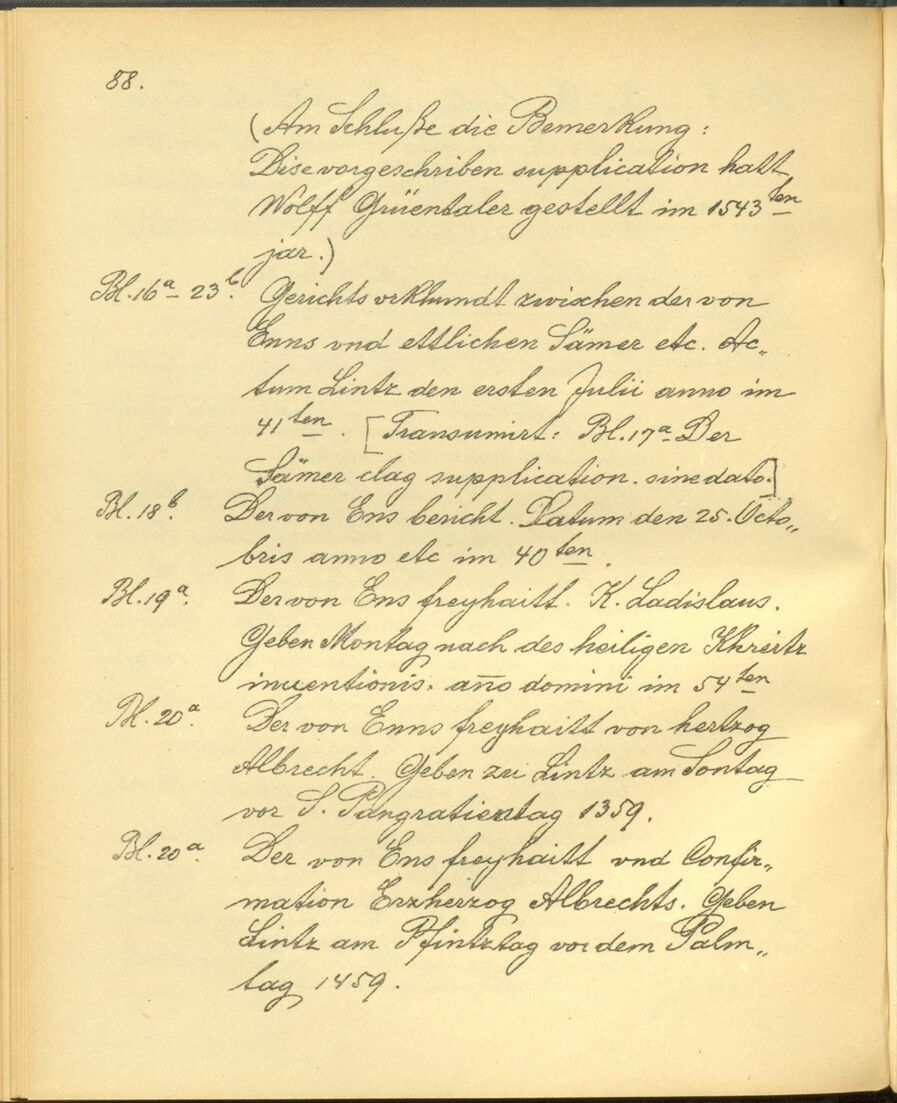 88.
(Am Schluße die Bemerkung:
Dise vorgeschriben supplication hatt
Wolff Grüentaler gestellt im 1543ten
jar.)
Bl. 16a – 23b. Gerichts vrkhundt zwischen der von
Enns vnd ettlichen Sämer etc. Ac„
tum Lintz den ersten Julii anno im
41ten. [Transumirt: Bl. 17a Der
Sämer clag supplication. sine dato.]
Bl. 18b. Der von Ens bericht. Datum den 25. Octo„
bris anno etc im 40ten.
Bl. 19a. Der von Ens freyhaitt. K. Ladislaus.
Geben Montag nach des heiligen Khreitz
inuentionis. an̄o domini im 54ten
Bl. 20a. Der von Enns freyhaitt von hertzog
Albrecht. Geben zu Lintz am Sontag
vor S. Pangratientag 1359.
Bl. 20a. Der von Ens freyhaitt vnd Confir„
mation Erzherzog Albrechts. Geben
Lintz am Pfintztag vor dem Palm„
tag 1459.